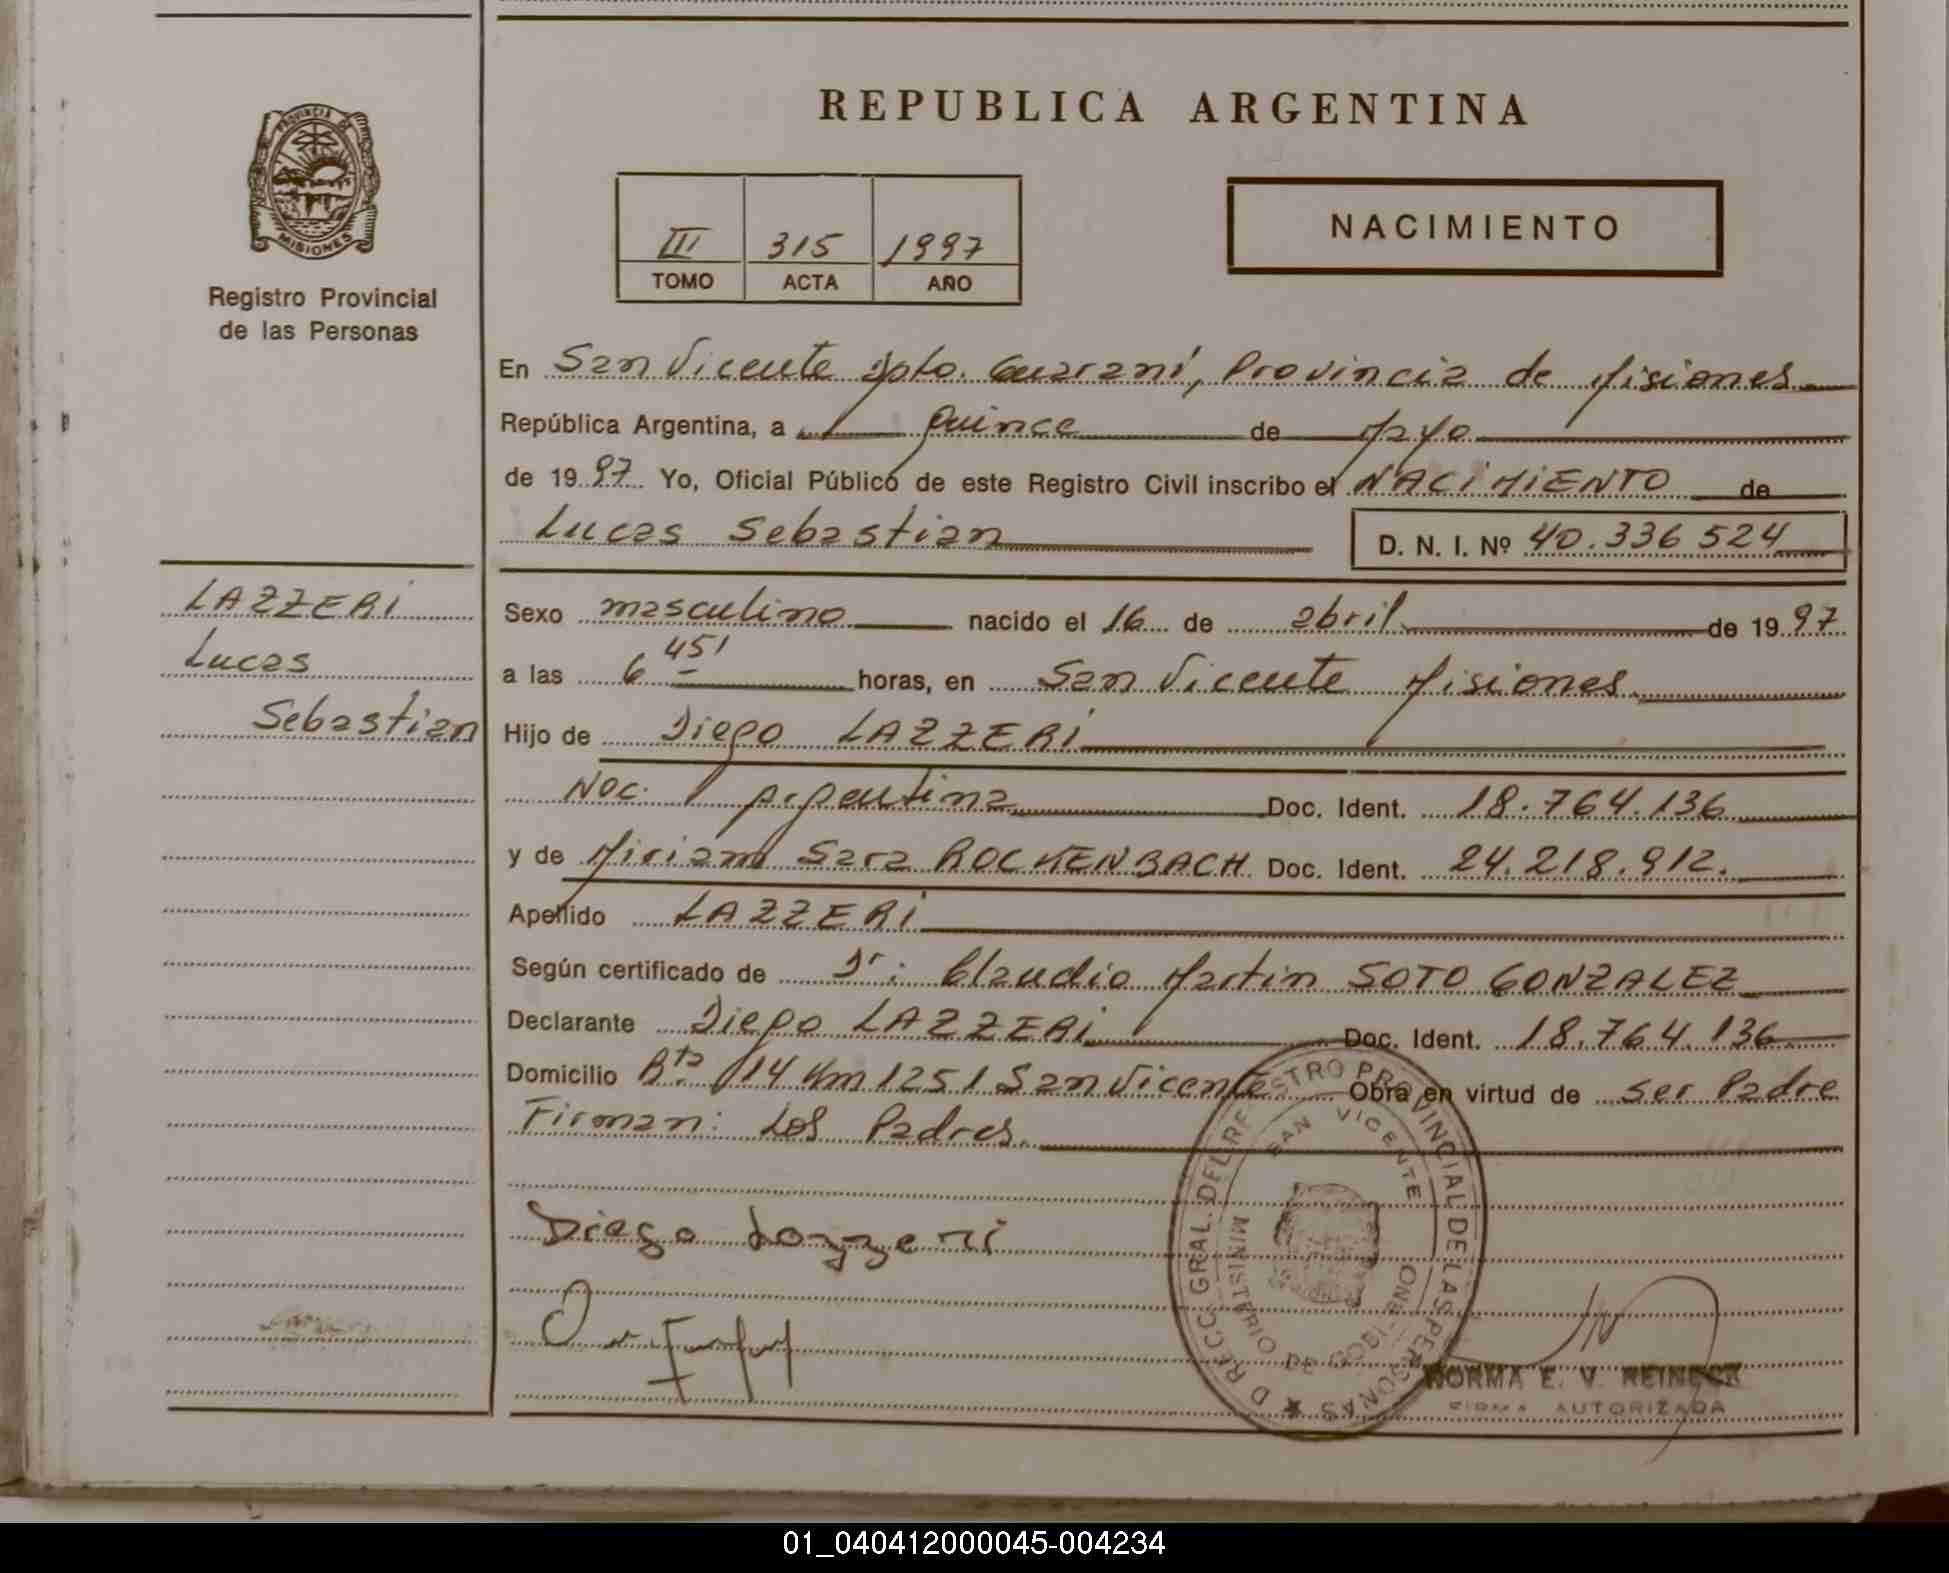 REPUBLICA ARGENTINA
PROVINCIA DE MISIONES
Registro Provincial
de las Personas
III 315 1997
TOMO ACTA AÑO
NACIMIENTO
En San Vicente Dpto. Guaraní, Provincia de Misiones
República Argentina, a Quince de Mayo
de 1997 Yo, Oficial Público de este Registro Civil inscribo el NACIMIENTO de
Lucas Sebastian D. N. I. Nº 40.336 524
LAZZERI
Lucas
Sebastian
Sexo masculino nacido el 16 de abril de 1997
a las 6 45' horas, en San Vicente Misiones
Hijo de Diego LAZZERI
Nac. Argentina Doc. Ident. 18.764.136
y de Miriam Sara ROCKENBACH Doc. Ident. 24.218.912.
Apellido LAZZERI
Según certificado de Dr: Claudio Martin SOTO GONZALEZ
Declarante Diego LAZZERI Doc. Ident. 18.764.136
Domicilio Rta 14 Km 1251 San Vicente Obra en virtud de ser Padre
Firman: Los Padres.
Diego Lazzeri
SAN VICENTE
NORMA E. V. REINECK
FIRMA AUTORIZADA
01_040412000045-004234